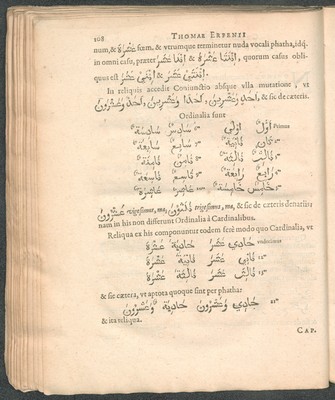 108 THOMAE ERPENII
num, & عَشْرَةَ fœm. & utrumque terminetur nuda vocali phatha, idq.
in omni casu, præter إِثْنَتَا عَشْرَةَ & إِثْنَا عَشَرَ, quorum casus obli-
quus est إِثْنَتَيْ عَشْرَةَ & إِثْنَيْ عَشَرَ.
In reliquis accedit Conjunctio absque ulla mutatione, ut
أَحَدٌ وَعِشْرُونَ, أَحَدًا وَعِشْرِينَ, & sic de cæteris.
Ordinalia sunt
أَوَّلُ أُولَى Primus سَادِسٌ سَادِسَةٌ
ثَانٍ ثَانِيَةٌ سَابِعٌ سَابِعَةٌ
ثَالِثٌ ثَالِثَةٌ ثَامِنٌ ثَامِنَةٌ
رَابِعٌ رَابِعَةٌ تَاسِعٌ تَاسِعَةٌ
خَامِسٌ خَامِسَةٌ عَاشِرٌ عَاشِرَةٌ
عِشْرُونَ vigesimus, ma, ثَلَاثُونَ trigesimus, ma, & sic de cæteris denariis;
nam in his non differunt Ordinalia à Cardinalibus.
Reliqua ex his componuntur eodem ferè modo quo Cardinalia, ut
حَادِي عَشَرَ حَادِيَةَ عَشْرَةَ undecimus
ثَانِي عَشَرَ ثَانِيَةَ عَشْرَةَ
ثَالِثَ عَشَرَ ثَالِثَةَ عَشْرَةَ
& sic cætera, ut aptota quoque sint per phatha:
حَادِي وَعِشْرُونَ حَادِيَة وَعِشْرُونَ
& ita reliqua.
CAP.